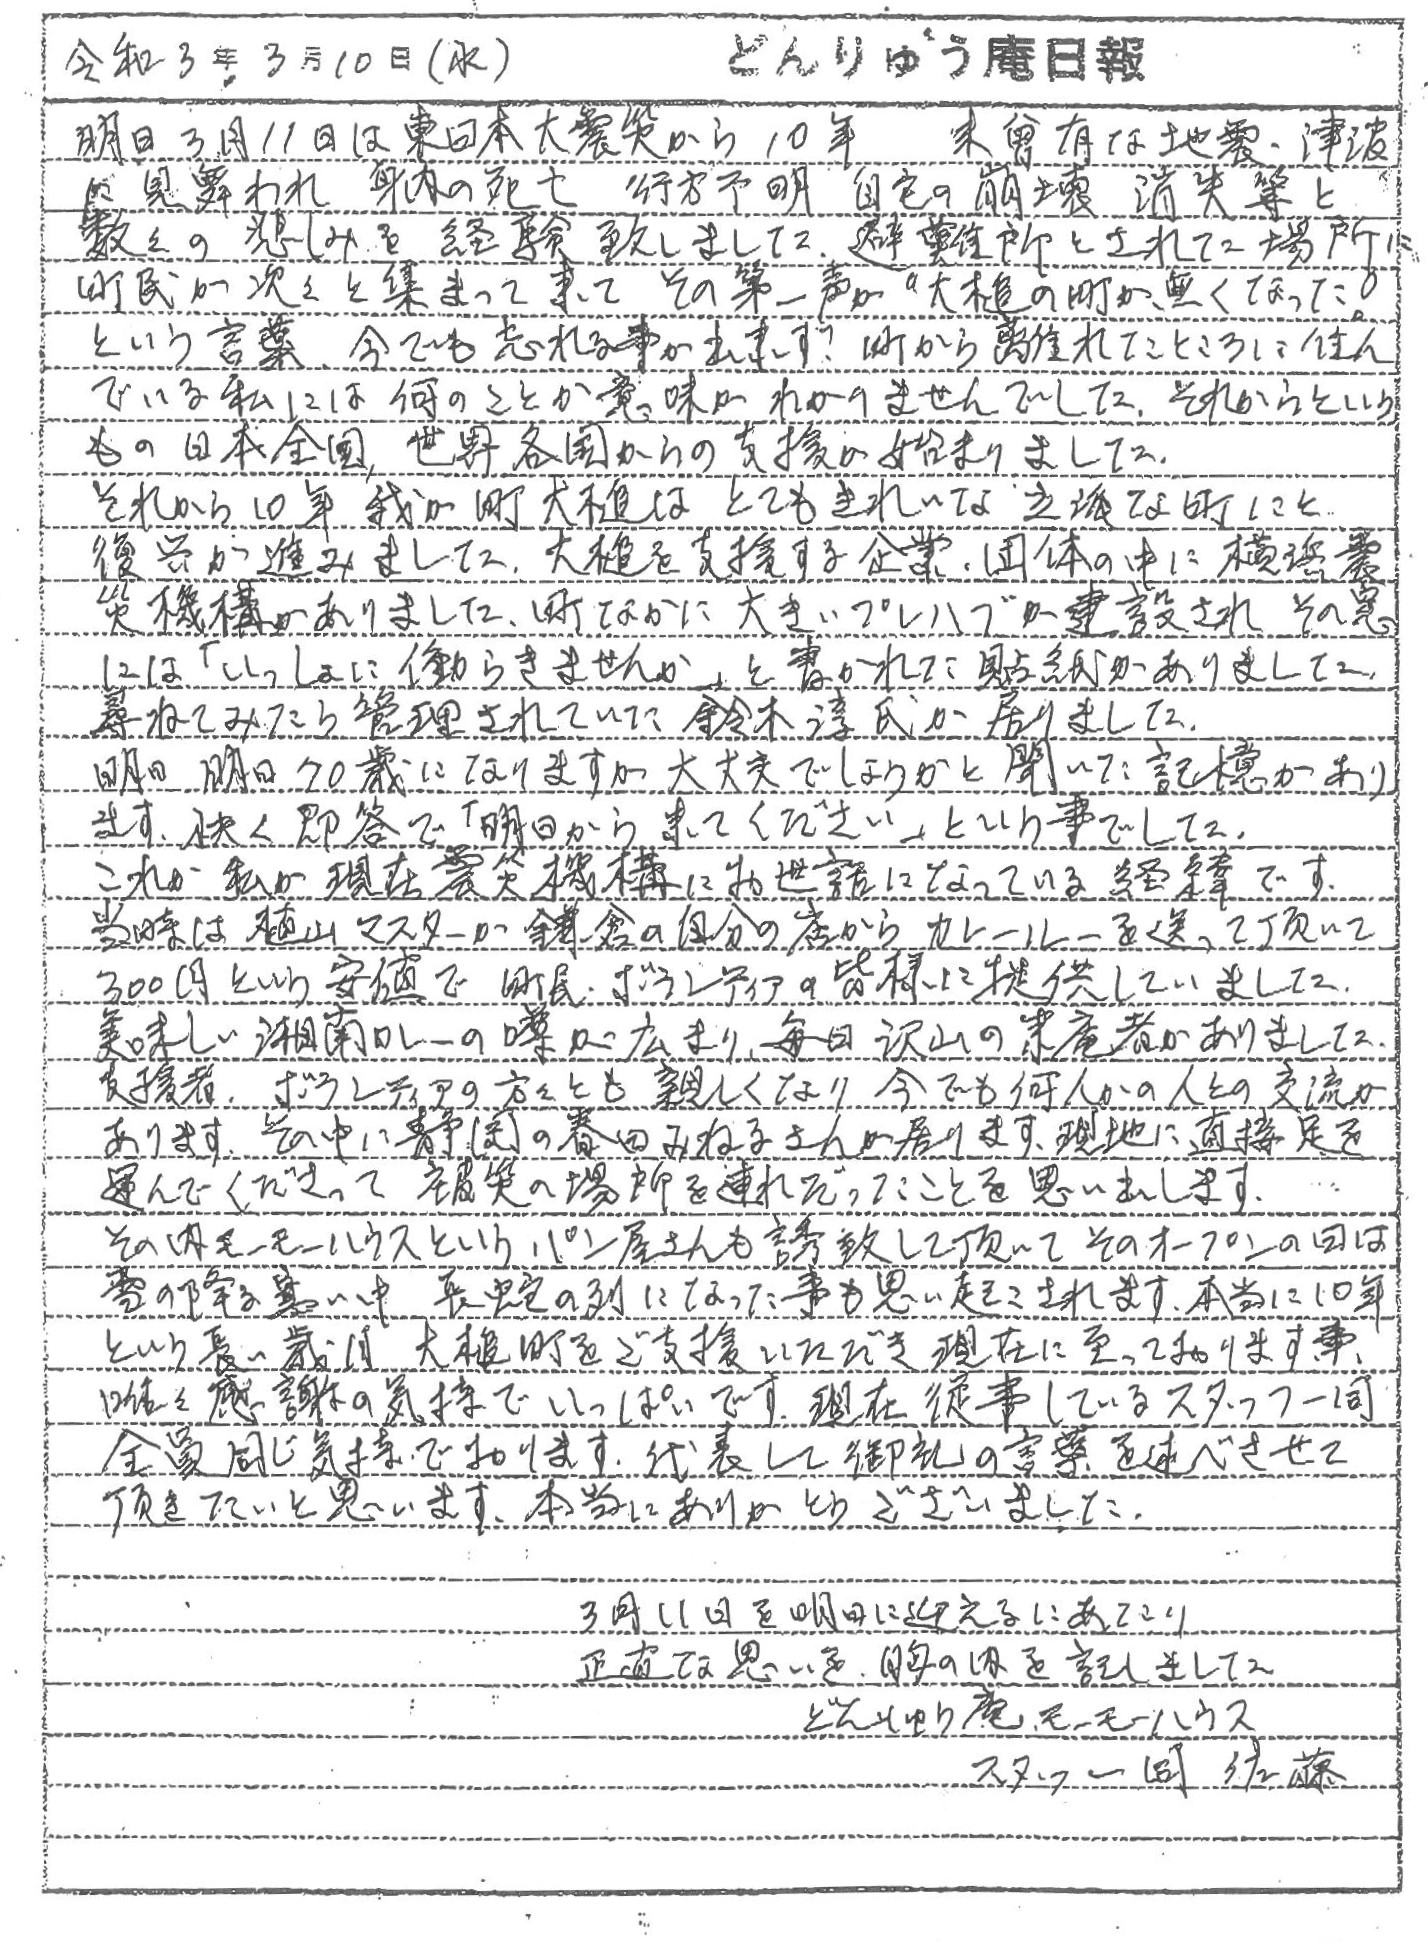 令和3年3月10日(水) どんりゅう庵日報
明日3月11日は東日本大震災から10年 未曾有な地震、津波
に見舞われ 身内の死亡 行方不明 自宅の崩壊 消失等と
数々の悲しみを経験致しました。避難所とされた場所に
町民が次々と集まって来て その第一声が“大槌の町が無くなった。”
という言葉、今でも忘れる事が出来ず? 町から離れたところに住ん
でいる私には何のことか意味がわかりませんでした。それからという
もの日本全国,世界各国からの支援が始まりました。
それから10年 我が町大槌は とてもきれいな 立派な町にと
復興が進みました。大槌を支援する企業、団体の中に横浜震
災機構がありました。町なかに大きいプレハブが建設され その窓
には「いっしょに働らきませんか」と書かれた貼紙がありました。
尋ねてみたら管理されていた 鈴木淳氏が居りました。
明日 明日70歳になりますが大丈夫でしょうかと聞いた記憶があり
ます。快く即答で「明日から来てください」という事でした。
これが私が現在震災機構にお世話になっている経緯です。
当時は植山マスターが鎌倉の自分の店からカレールーを送って頂いて
300円という安値で 町民、ボランティアの皆様に提供していました。
美味しい湘南カレーの噂が広まり、毎日沢山の来庵者がありました。
支援者、ボランティアの方々とも親しくなり 今でも何人かの人との交流が
あります。その中に静岡の春田みねるさんが居ります。現地に直接足を
運んでくださって 被災の場所を連れだったことを思い出します。
その内モーモーハウスというパン屋さんも誘致して頂いて そのオープンの日は
雪の降る寒い中 長蛇の列になった事も思い起こされます。本当に10年
という長い歳月 大槌町をご支援いただき現在に至っております事、
唯々感謝の気持でいっぱいです。現在従事しているスタッフ一同
全員同じ気持でおります。代表して御礼の言葉を述べさせて
頂きたいと思います。本当にありがとうございました。
3月11日を明日に迎えるにあたり
正直な思いを、胸の内を記しました
どんりゅう庵、モーモーハウス
スタッフ一同 佐藤